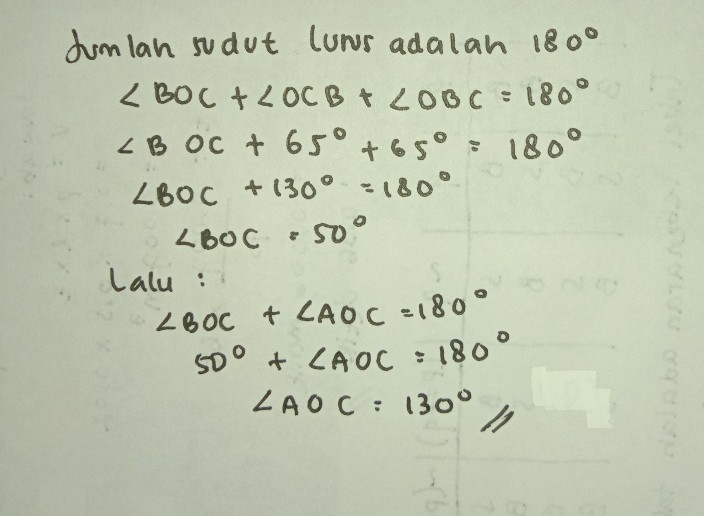 Jumlah sudut lurus adalah 180°
∠BOC + ∠OCB + ∠OBC = 180°
∠BOC + 65° + 65° = 180°
∠BOC + 130° = 180°
∠BOC = 50°
Lalu :
∠BOC + ∠AOC = 180°
50° + ∠AOC = 180°
∠AOC = 130° //